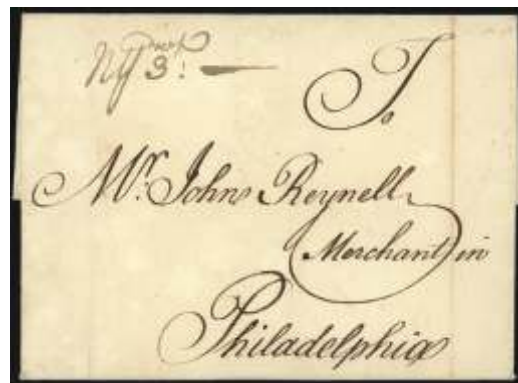 NY 3:
To
Mr. John Reynell
Merchant in
Philadelphia